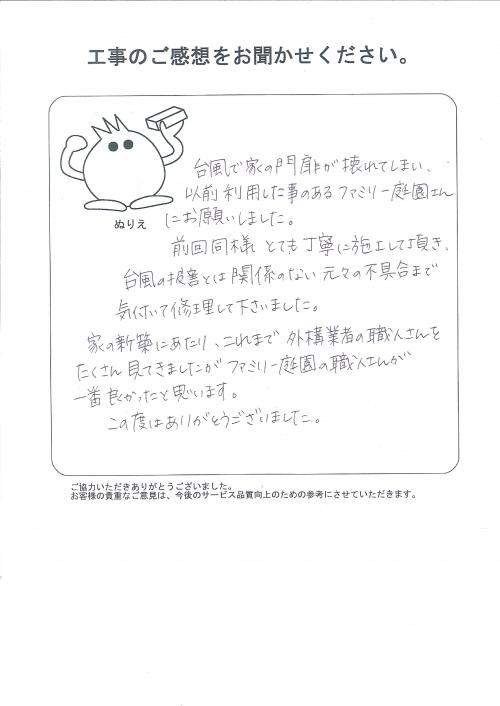 工事のご感想をお聞かせください。
ぬりえ
台風で家の門扉が壊れてしまい、
以前利用した事のあるファミリー庭園さん
にお願いしました。
前回同様とても丁寧に施工して頂き、
台風の被害とは関係のない元々の不具合まで
気付いて修理して下さいました。
家の新築にあたり、これまで外構業者の職人さんを
たくさん見てきましたがファミリー庭園の職人さんが
一番良かったと思います。
この度はありがとうございました。
ご協力いただきありがとうございました。
お客様の貴重なご意見は、今後のサービス品質向上のための参考にさせていただきます。